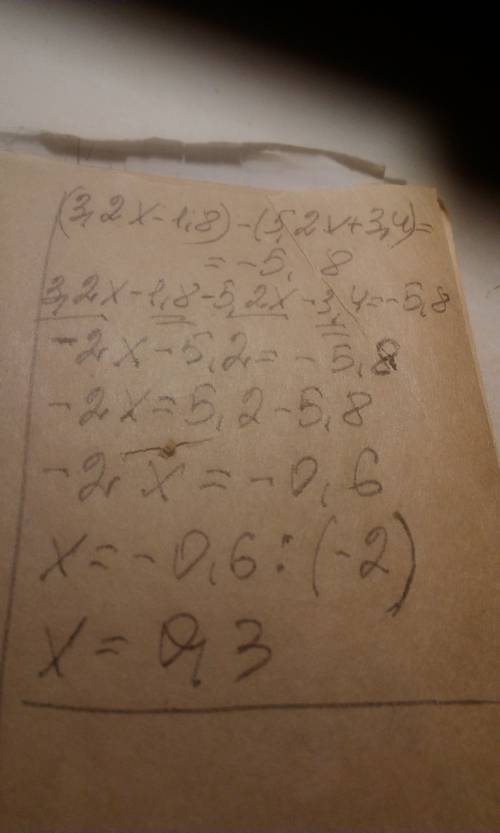 (3,2x-1,8)-(5,2x+3,4)=
=-5,8
3,2x-1,8-5,2x-3,4=-5,8
-2x-5,2=-5,8
-2x=5,2-5,8
-2x=-0,6
x=-0,6:(-2)
x=0,3